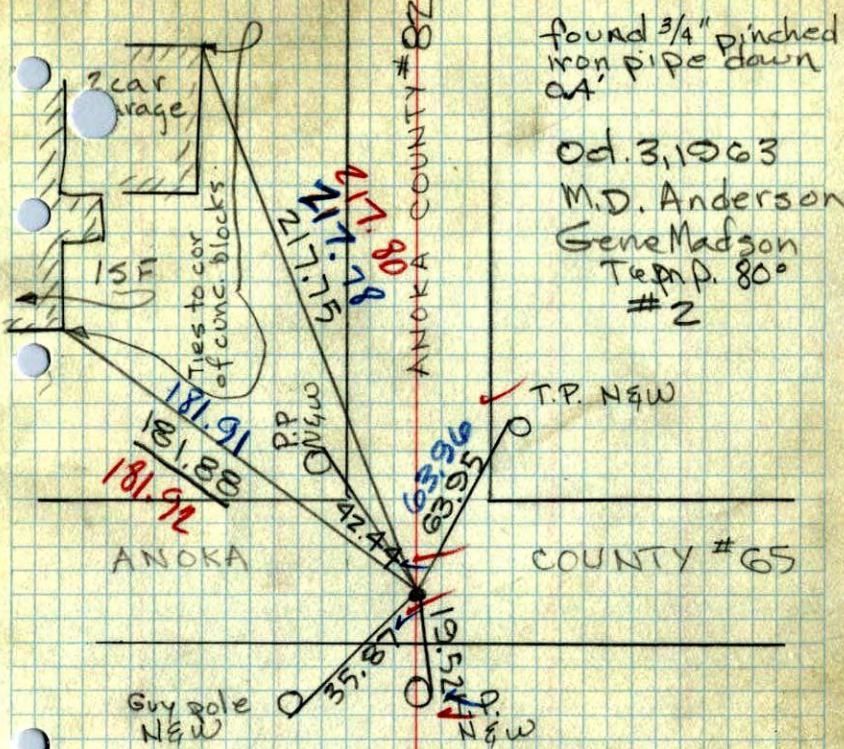 found 3/4" pinched
iron pipe down
0.4'
Oct. 3, 1963
M.D. Anderson
Gene Madson
Temp. 80°
#2
2 car
garage
1SF
Ties to cor
of conc. blocks.
ANOKA COUNTY #82
217.80
217.78
217.75
181.91
181.88
181.92
P.P.
N&W
42.44
63.96
63.95
T.P. N&W
ANOKA COUNTY #65
35.87
16.52
Guy pole
N&W
N&W